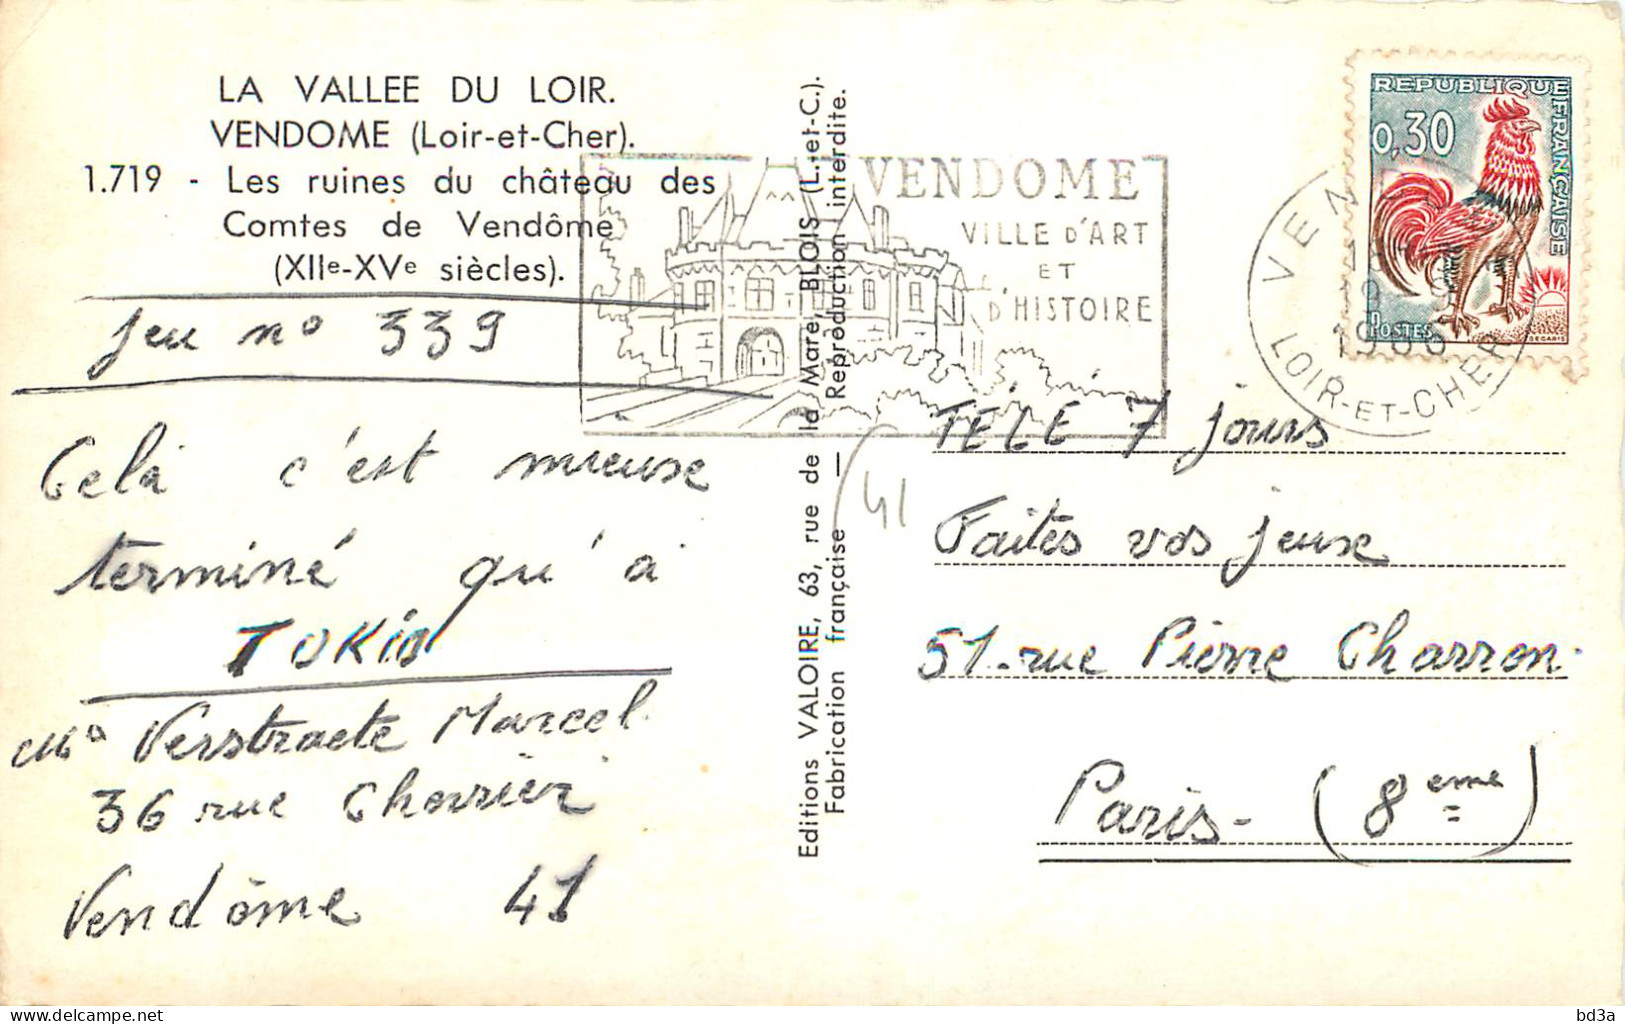 LA VALLEE DU LOIR.
VENDOME (Loir-et-Cher).
1.719 - Les ruines du château des
Comtes de Vendôme
(XIIe-XVe siècles).
Jeu n° 339
Celà c'est mieuse
terminé qu'a
TOKio
Verstraete Marcel
36 rue
Vendôme 41
Editions VALOIRE, 63, rue de la Mare, BLOIS (L.-et-C.).
Fabrication française — Reproduction interdite.
41
VENDOME
VILLE D'ART
ET
D'HISTOIRE
REPUBLIQUE FRANÇAISE
0,30
POSTES
DECARIS
VEN
LOIR-ET-CHER
TELE 7 jours
Faites vos jeux
51-rue Pierre Charron.
Paris- (8eme)
delcampe.net
bd3a